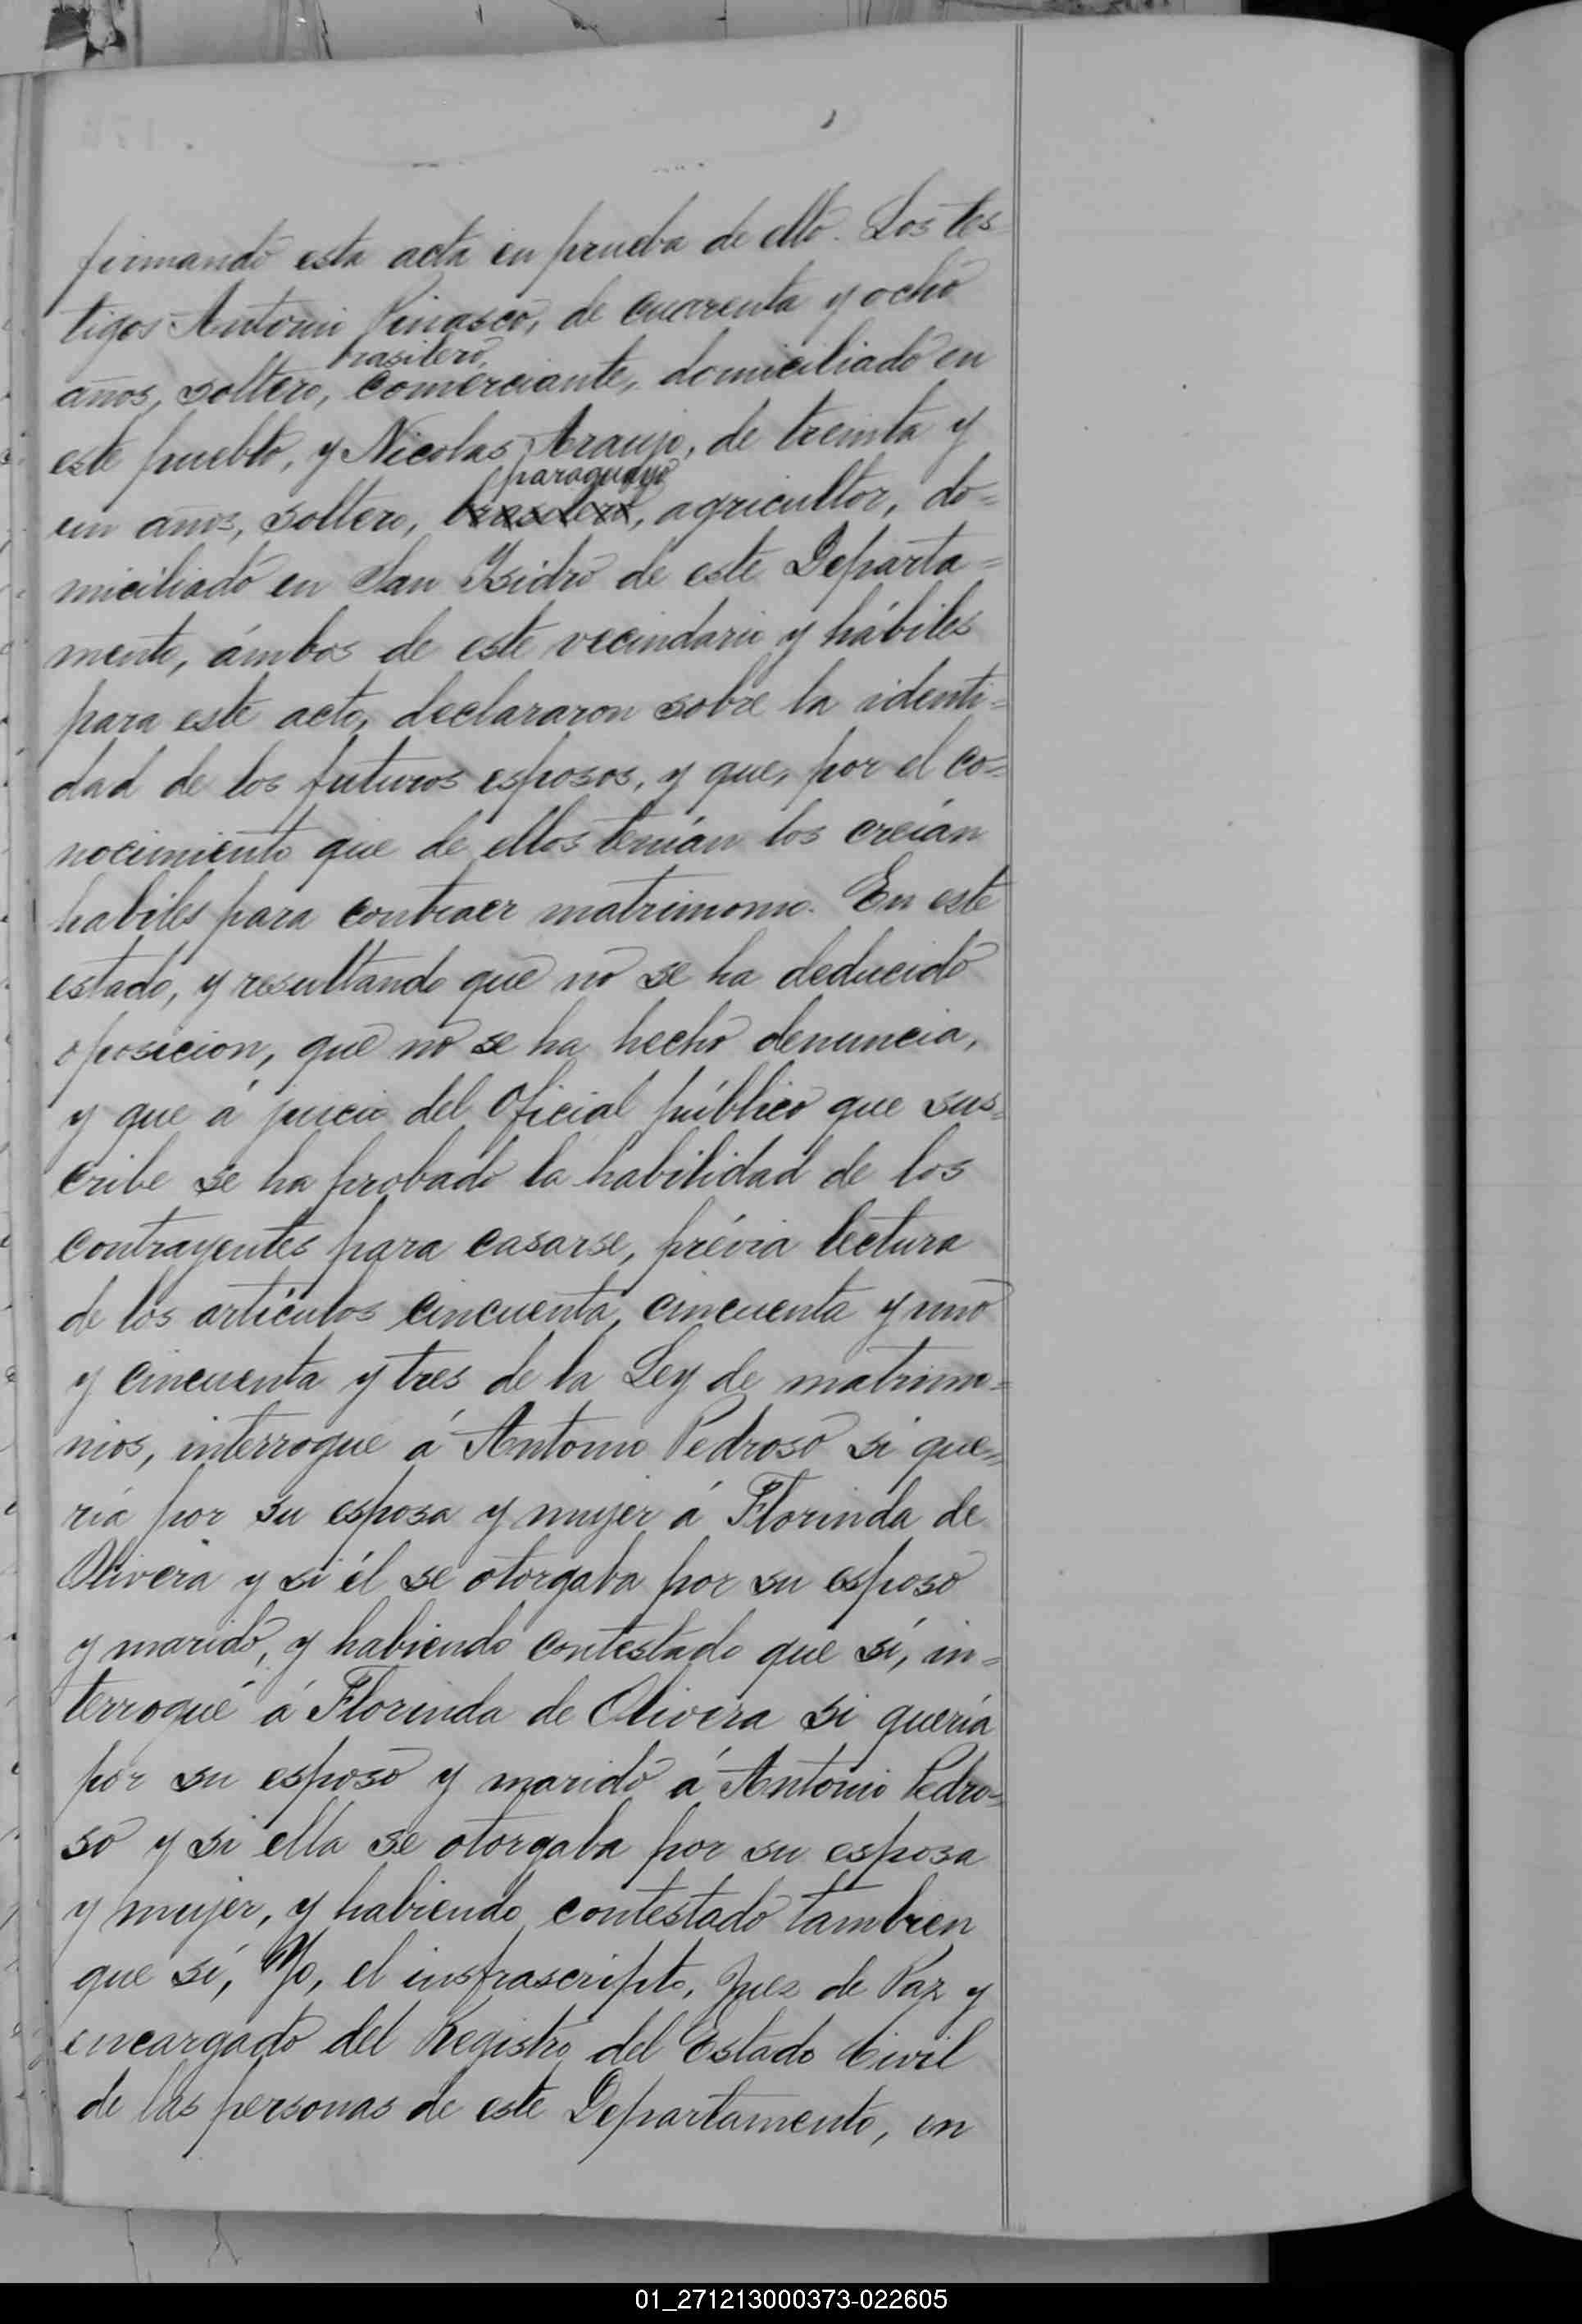 firmando esta acta en prueba de ello. Los tes
tigos Antonio Pinasco, de cuarenta y ocho
brasilero,
años, soltero, comerciante, domiciliado en
este pueblo, y Nicolas Araujo, de treinta y
paraguayo
un años, soltero, brasilero, agricultor, do=
miciliado en San Ysidro de este Departa=
mento, ámbos de este vecindario y hábiles
para este acto, declararon sobre la identi=
dad de los futuros esposos, y que, por el co=
nocimiento que de ellos tenían los creían
habiles para contraer matrimonio. En este
estado, y resultando que no se ha deducido
oposicion, que no se ha hecho denuncia,
y que á juicio del Oficial público que sus=
cribe se ha probado la habilidad de los
contrayentes para casarse, prévia lectura
de los artículos cincuenta, cincuenta y uno
y cincuenta y tres de la Ley de matrimo=
nios, interrogue á Antonio Pedroso si que=
ría por su esposa y mujer á Florinda de
Olivera y si él se otorgaba por su esposo
y marido, y habiendo contestado que sí, in=
terrogué á Florinda de Olivera si quería
por su esposo y marido á Antonio Pedro=
so y si ella se otorgaba por su esposa
y mujer, y habiendo contestado tambien
que sí, Yo, el insfrascripto, Juez de Paz y
encargado del Registro del Estado Civil
de las personas de este Departamento, en
01_271213000373-022605